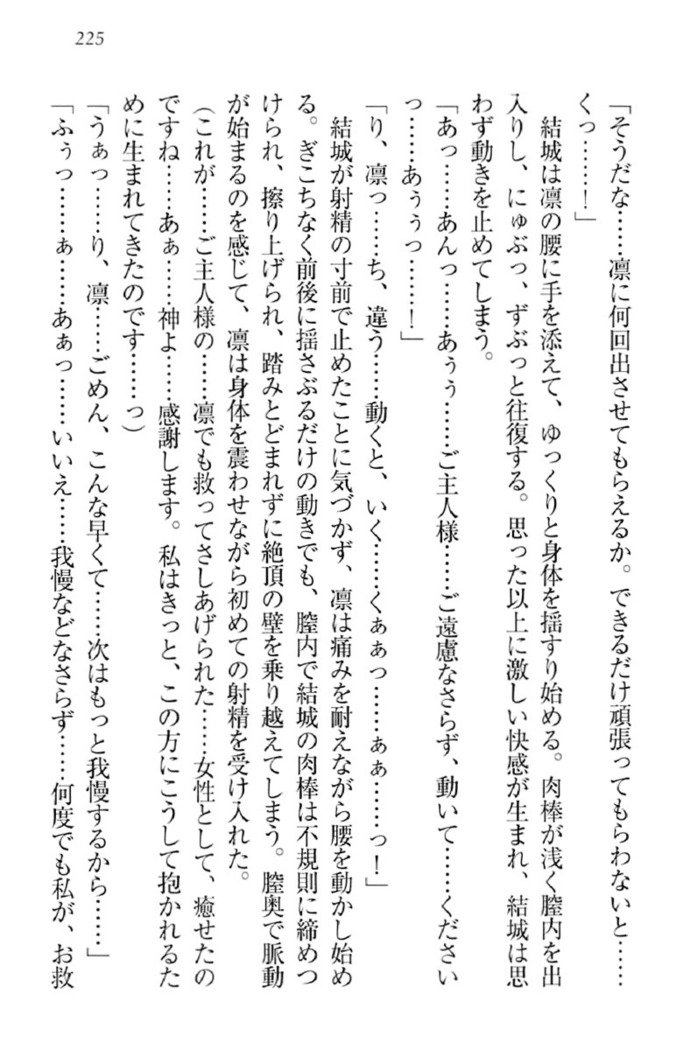 225
「そうだな……凛に何回出させてもらえるか。できるだけ頑張ってもらわないと……
くっ……！」
結城は凛の腰に手を添えて、ゆっくりと身体を揺すり始める。肉棒が浅く膣内を出
入りし、にゅぷっ、ずぷっと往復する。思った以上に激しい快感が生まれ、結城は思
わず動きを止めてしまう。
「あっ……あんっ……あぅぅ……ご主人様……ご遠慮なさらず、動いて……ください
っ……あぅぅっ……！」
「り、凛っ……ち、違う……動くと、いく……くぁぁっ……ぁぁ……っ！」
結城が射精の寸前で止めたことに気づかず、凛は痛みを耐えながら腰を動かし始め
る。ぎこちなく前後に揺さぶるだけの動きでも、膣内で結城の肉棒は不規則に締めつ
けられ、擦り上げられ、踏みとどまれずに絶頂の壁を乗り越えてしまう。膣奥で脈動
が始まるのを感じて、凛は身体を震わせながら初めての射精を受け入れた。
（これが……ご主人様の……凛でも救ってさしあげられた……女性として、癒せたの
ですね……あぁ……神よ……感謝します。私はきっと、この方にこうして抱かれるた
めに生まれてきたのです……っ）
「うぁっ……り、凛……ごめん、こんな早くて……次はもっと我慢するから……」
「ふぅっ……ぁ……あぁっ……いいえ……我慢などなさらず……何度でも私が、お救